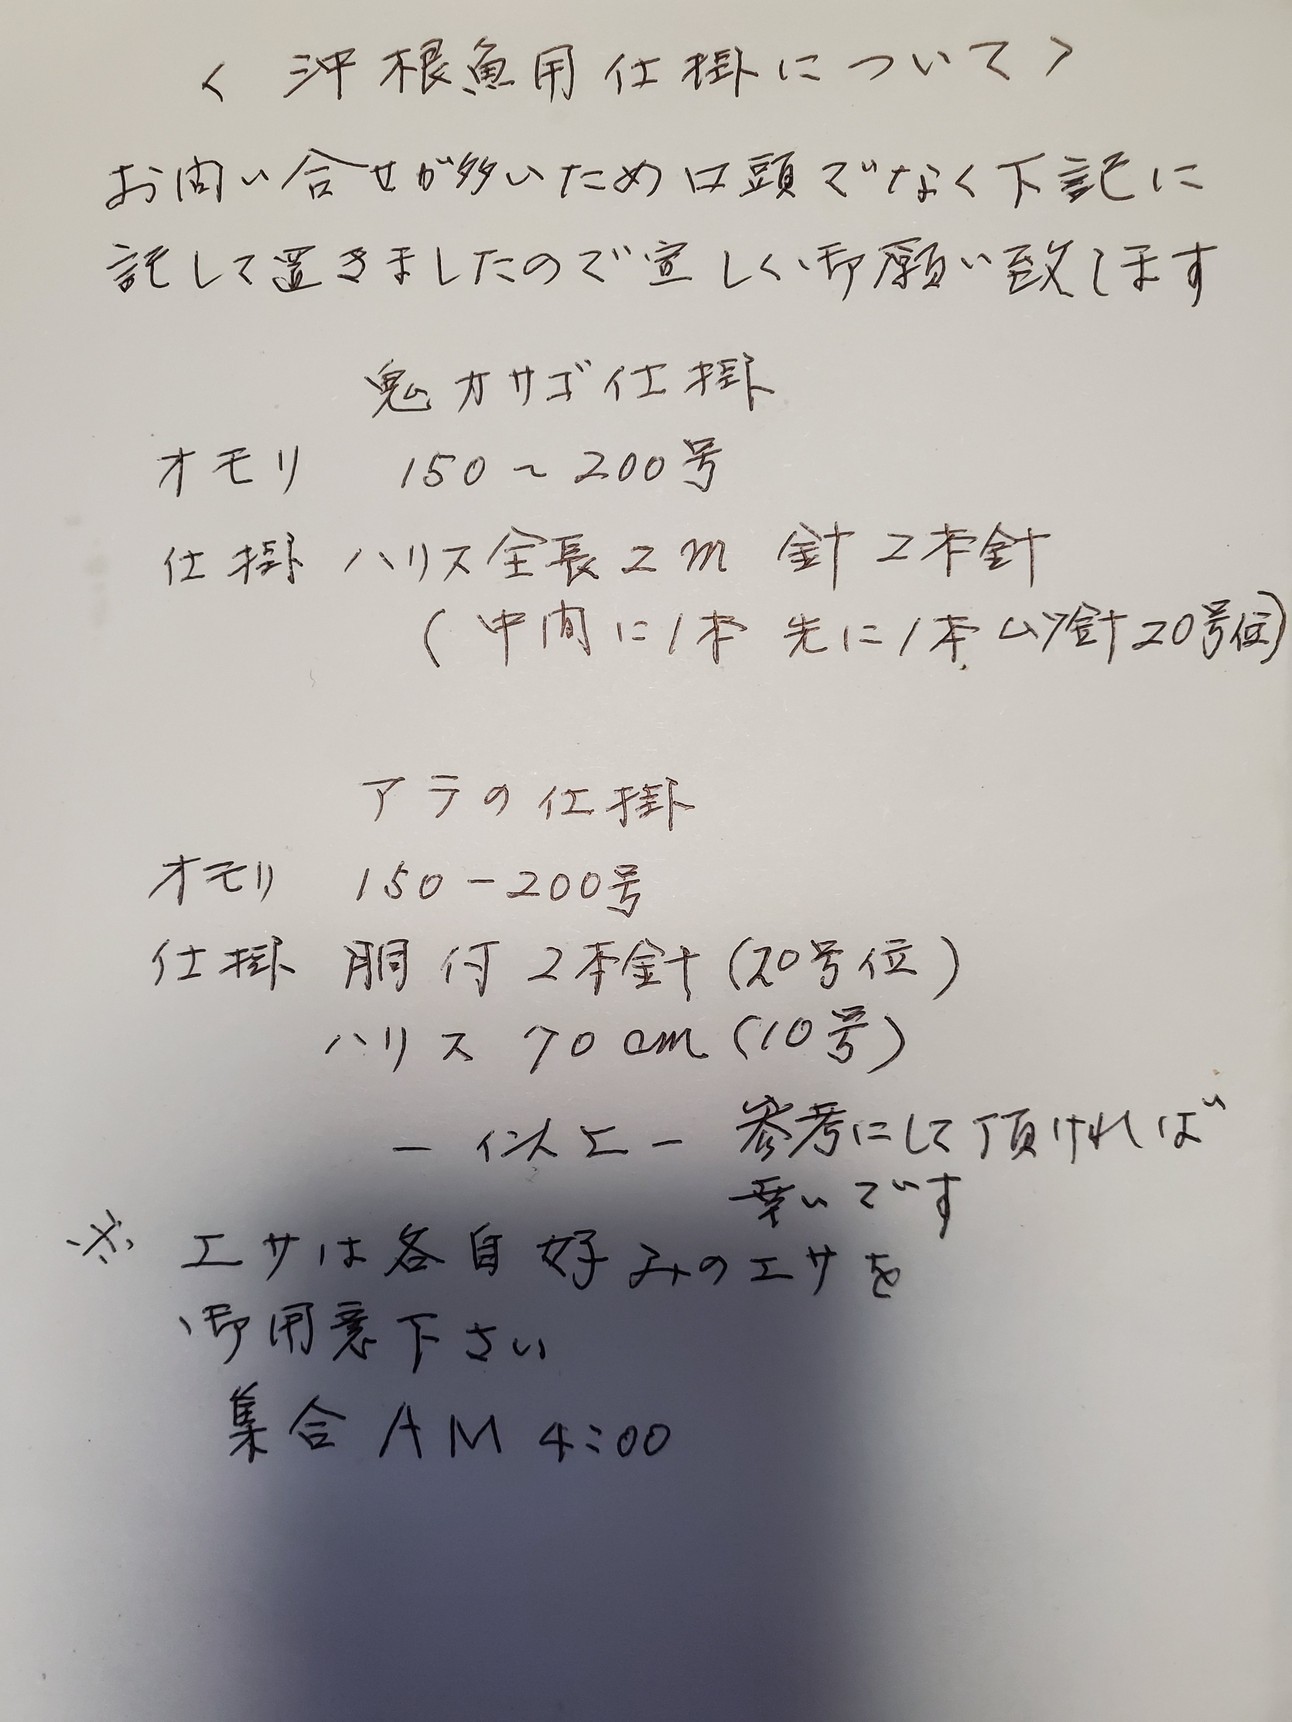 ＜沖根魚用仕掛について＞
お問い合せが多いため口頭でなく下記に
記して置きましたので宜しく御願い致します
鬼カサゴ仕掛
オモリ 150～200号
仕掛 ハリス全長2m 針2本針
（中間に1本 先に1本 ムツ針20号位）
アラの仕掛
オモリ 150－200号
仕掛 胴付2本針（20号位）
ハリス 70cm（10号）
－以上－ 参考にして頂ければ
幸いです
※ エサは各自好みのエサを
御用意下さい
集合 AM 4:00